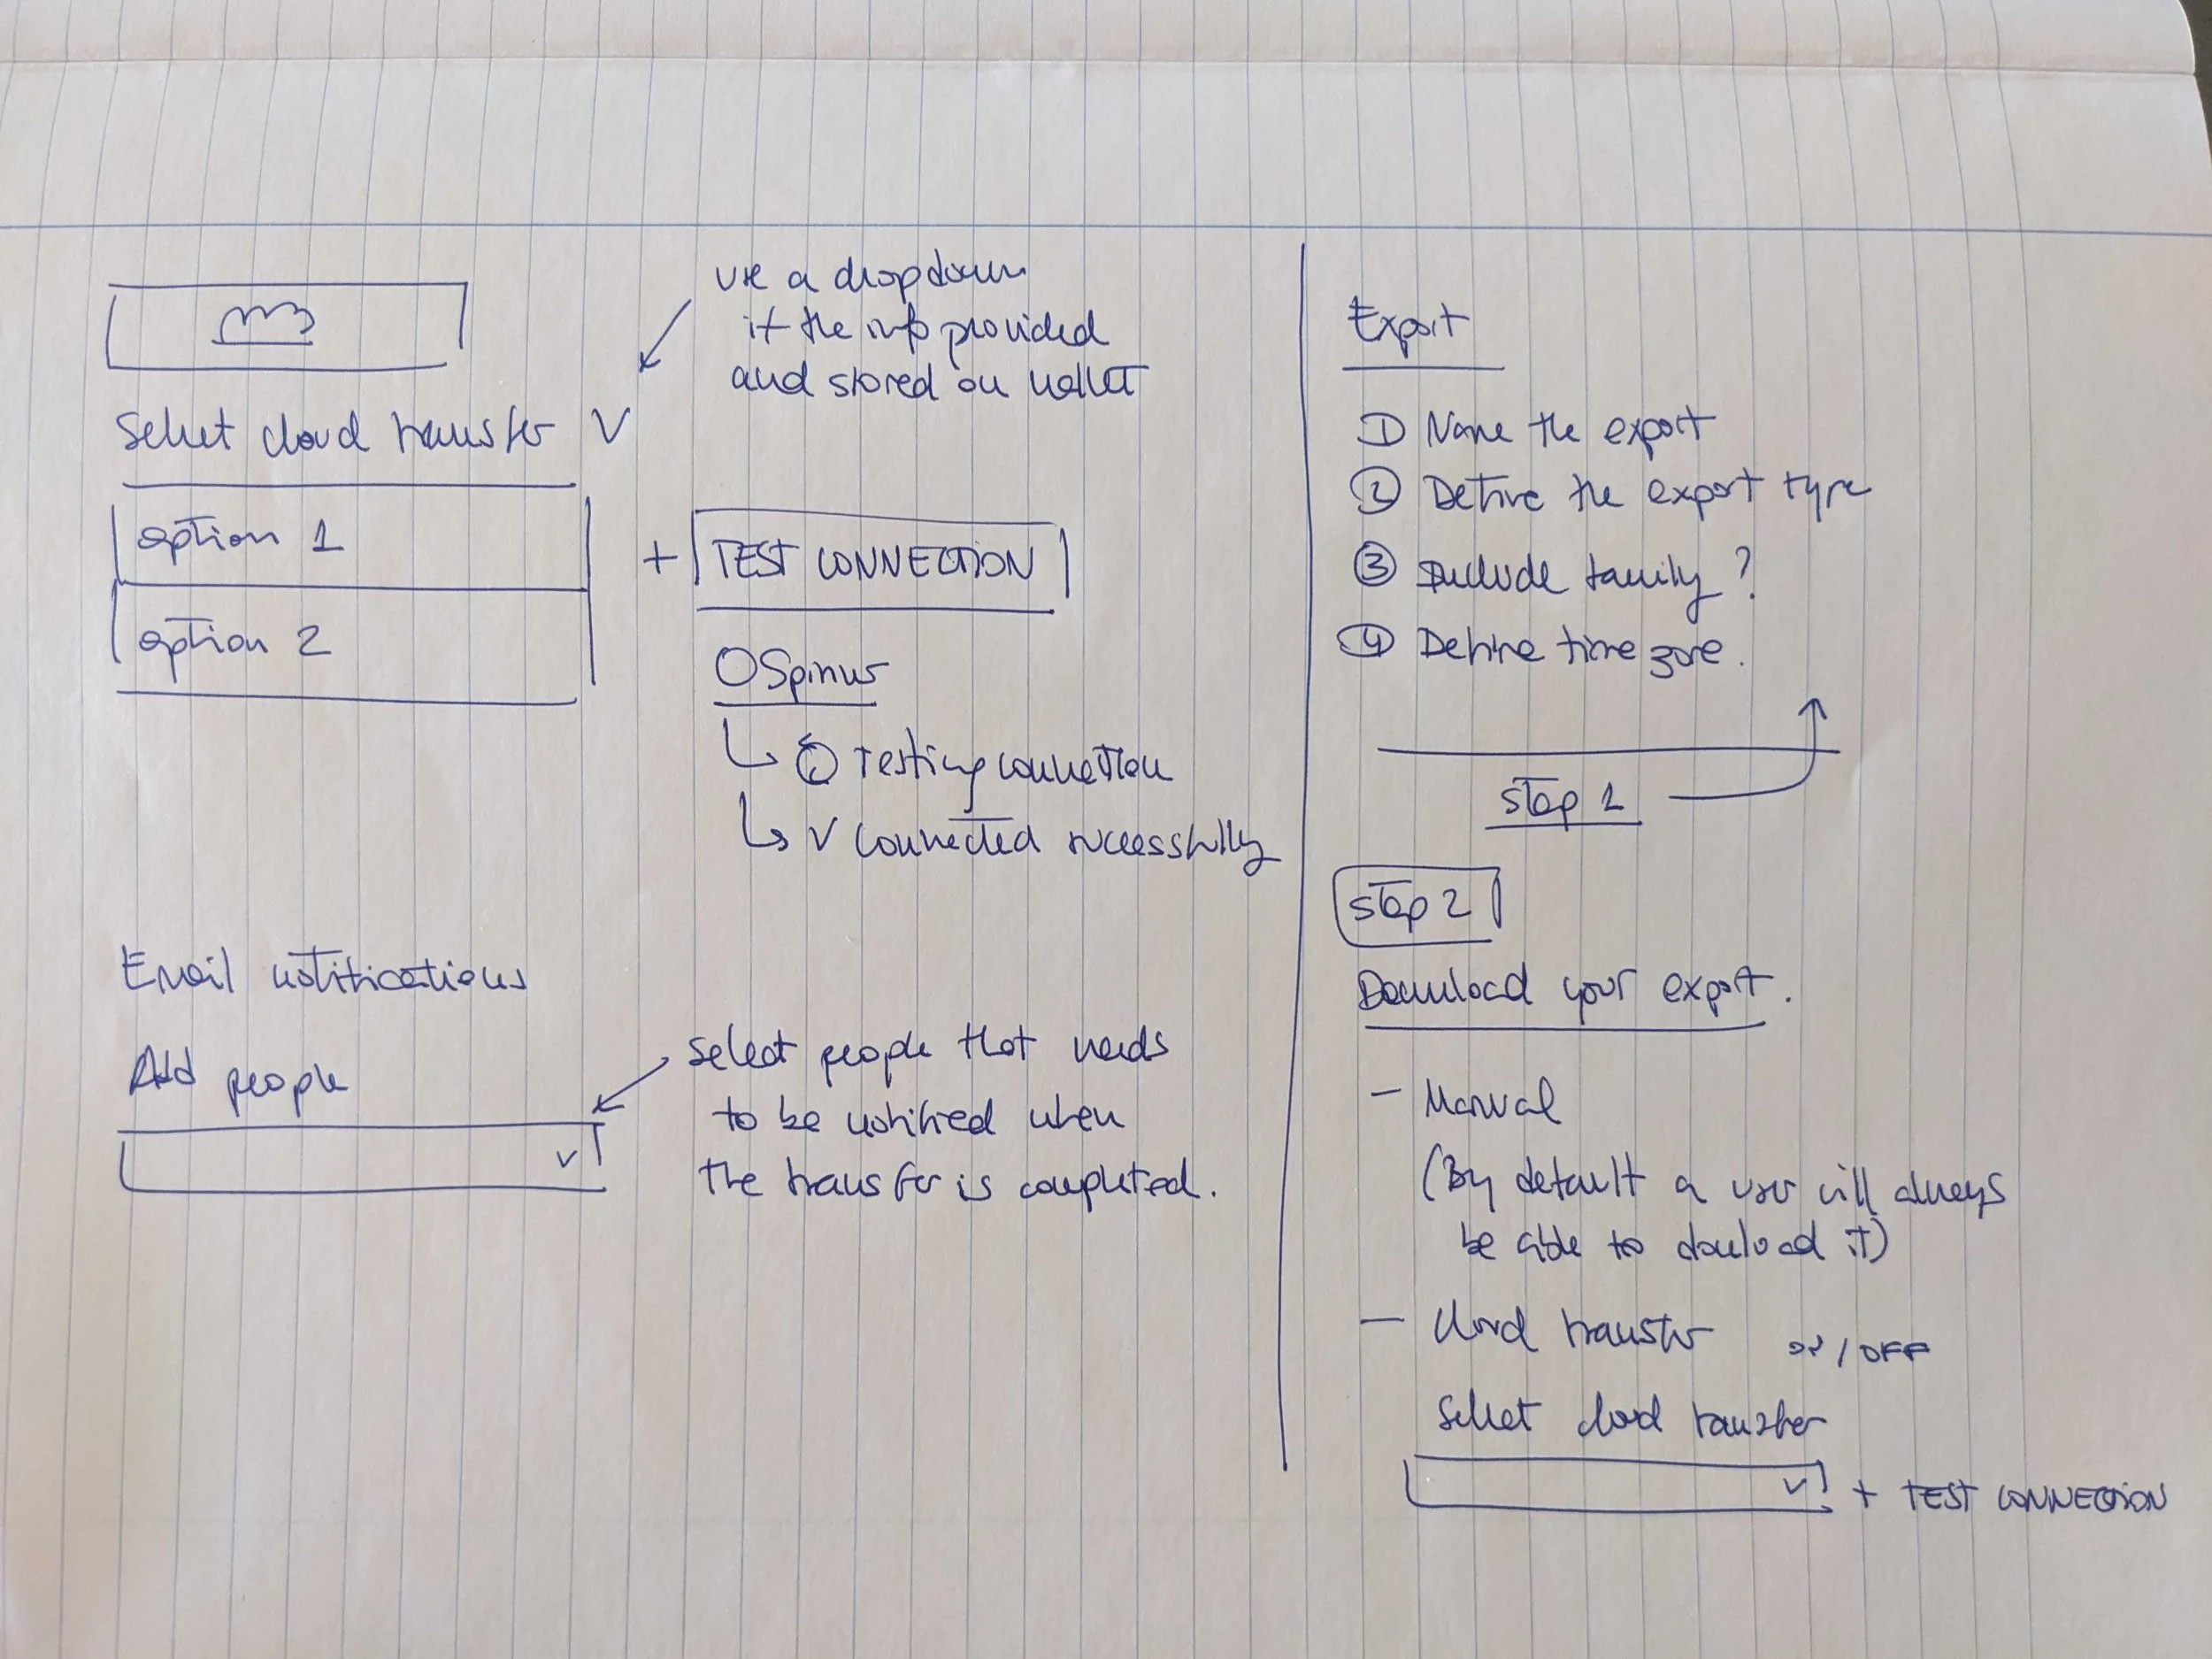 use a dropdown
if the info provided
and stored on wallet
Select cloud transfer V
option 1
option 2
+ TEST CONNECTION
Spinner
Testing connection
V Connected successfully
Email notifications
Add people
Select people that needs
to be notified when
the transfer is completed.
Export
1 Name the export
2 Define the export type
3 Include family ?
4 Define time zone.
step 1
step 2
Download your export.
- Manual
(By default a user will always
be able to download it)
- Cloud transfer ON / OFF
Select cloud transfer
+ TEST CONNECTION